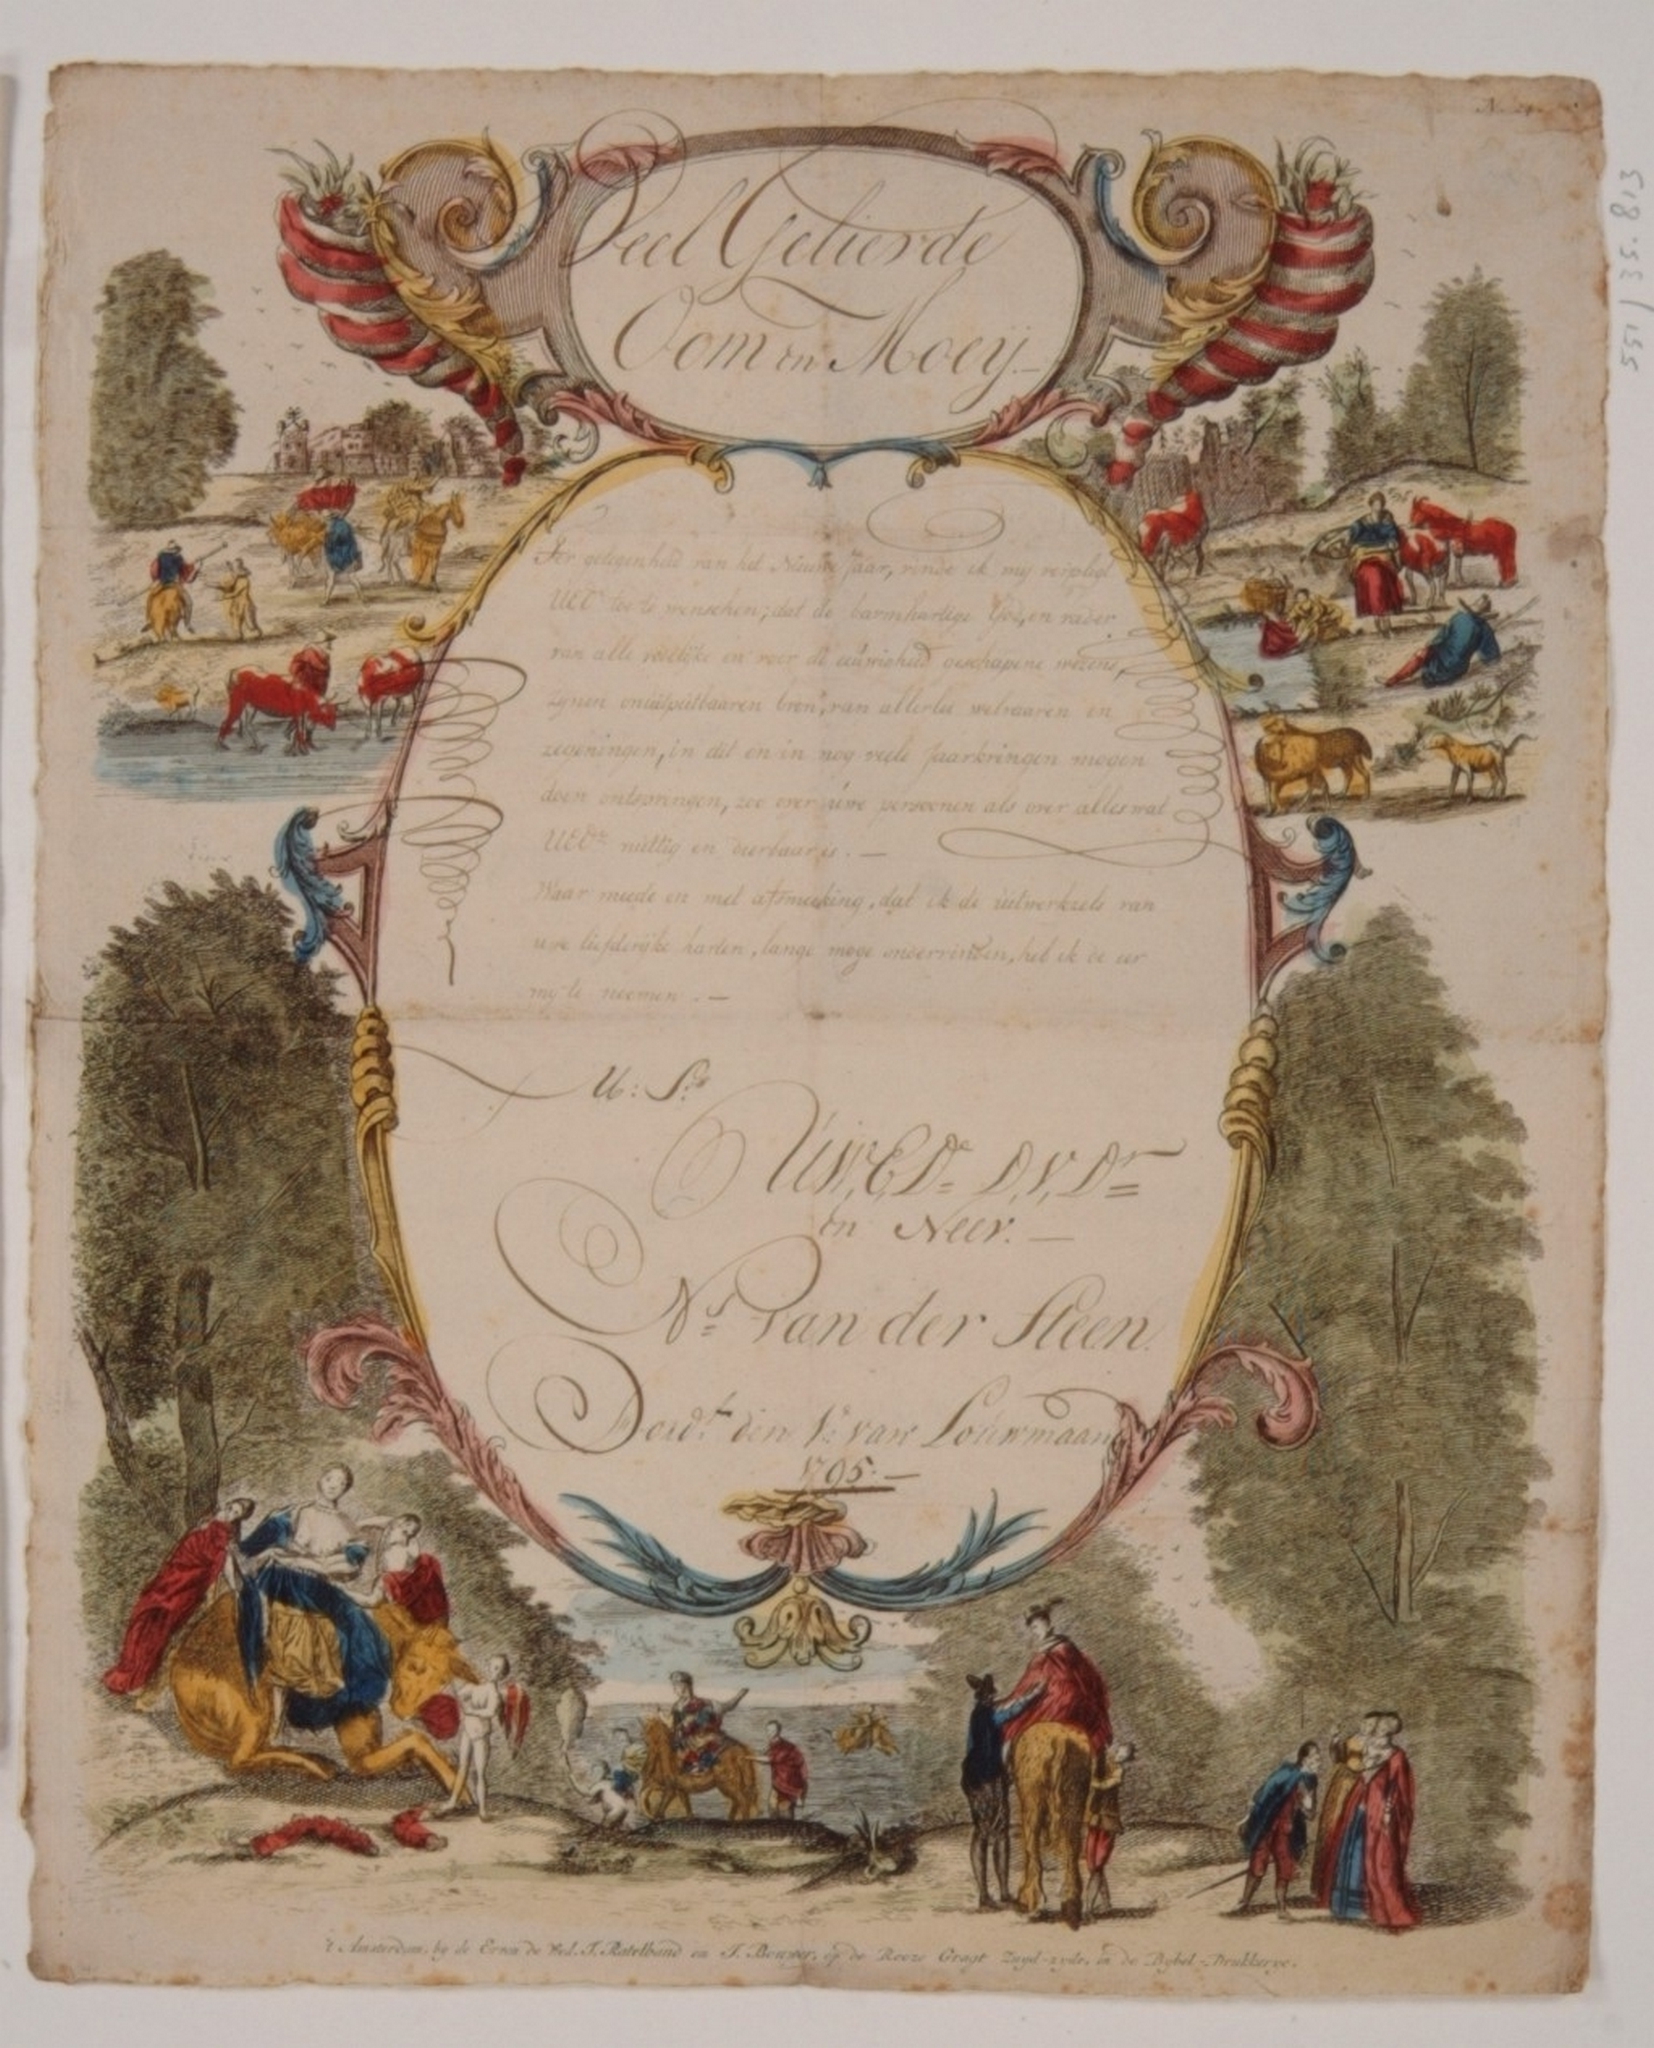 Veel Geliefde
Oom en Moeij.
Ter gelegenheid van het Nieuwe Jaar, vinde ik my verpligt
UED.s toe te wenschen; dat de barmhartige God, en vader
van alle redelijke en voor de eeuwigheid geschapene wezens,
zijnen onuitputbaaren bron, van allerlei welvaaren en
zegeningen, in dit en in nog veele Jaarkringen mogen
doen ontspringen, zoo over uwe persoonen als over alles wat
UED.s nuttig en dierbaar is. —
Waar mede en met afsmeeking, dat ik de uitwerkzels van
uwe liefderijke harten, lange moge ondervinden, heb ik de eer
my te noemen. —
U: S.r
UW,E,D.e D,V,D.r
en Neev. —
N.s van der Steen
Dord.t den 1.e van Louwmaand
1795. —
't Amsterdam, by de Erven de Wed. J. Ratelband en J. Bouwer, op de Rooze Gragt Zuyd-zyde, in de Bybel-Drukkerye.
551/35.813